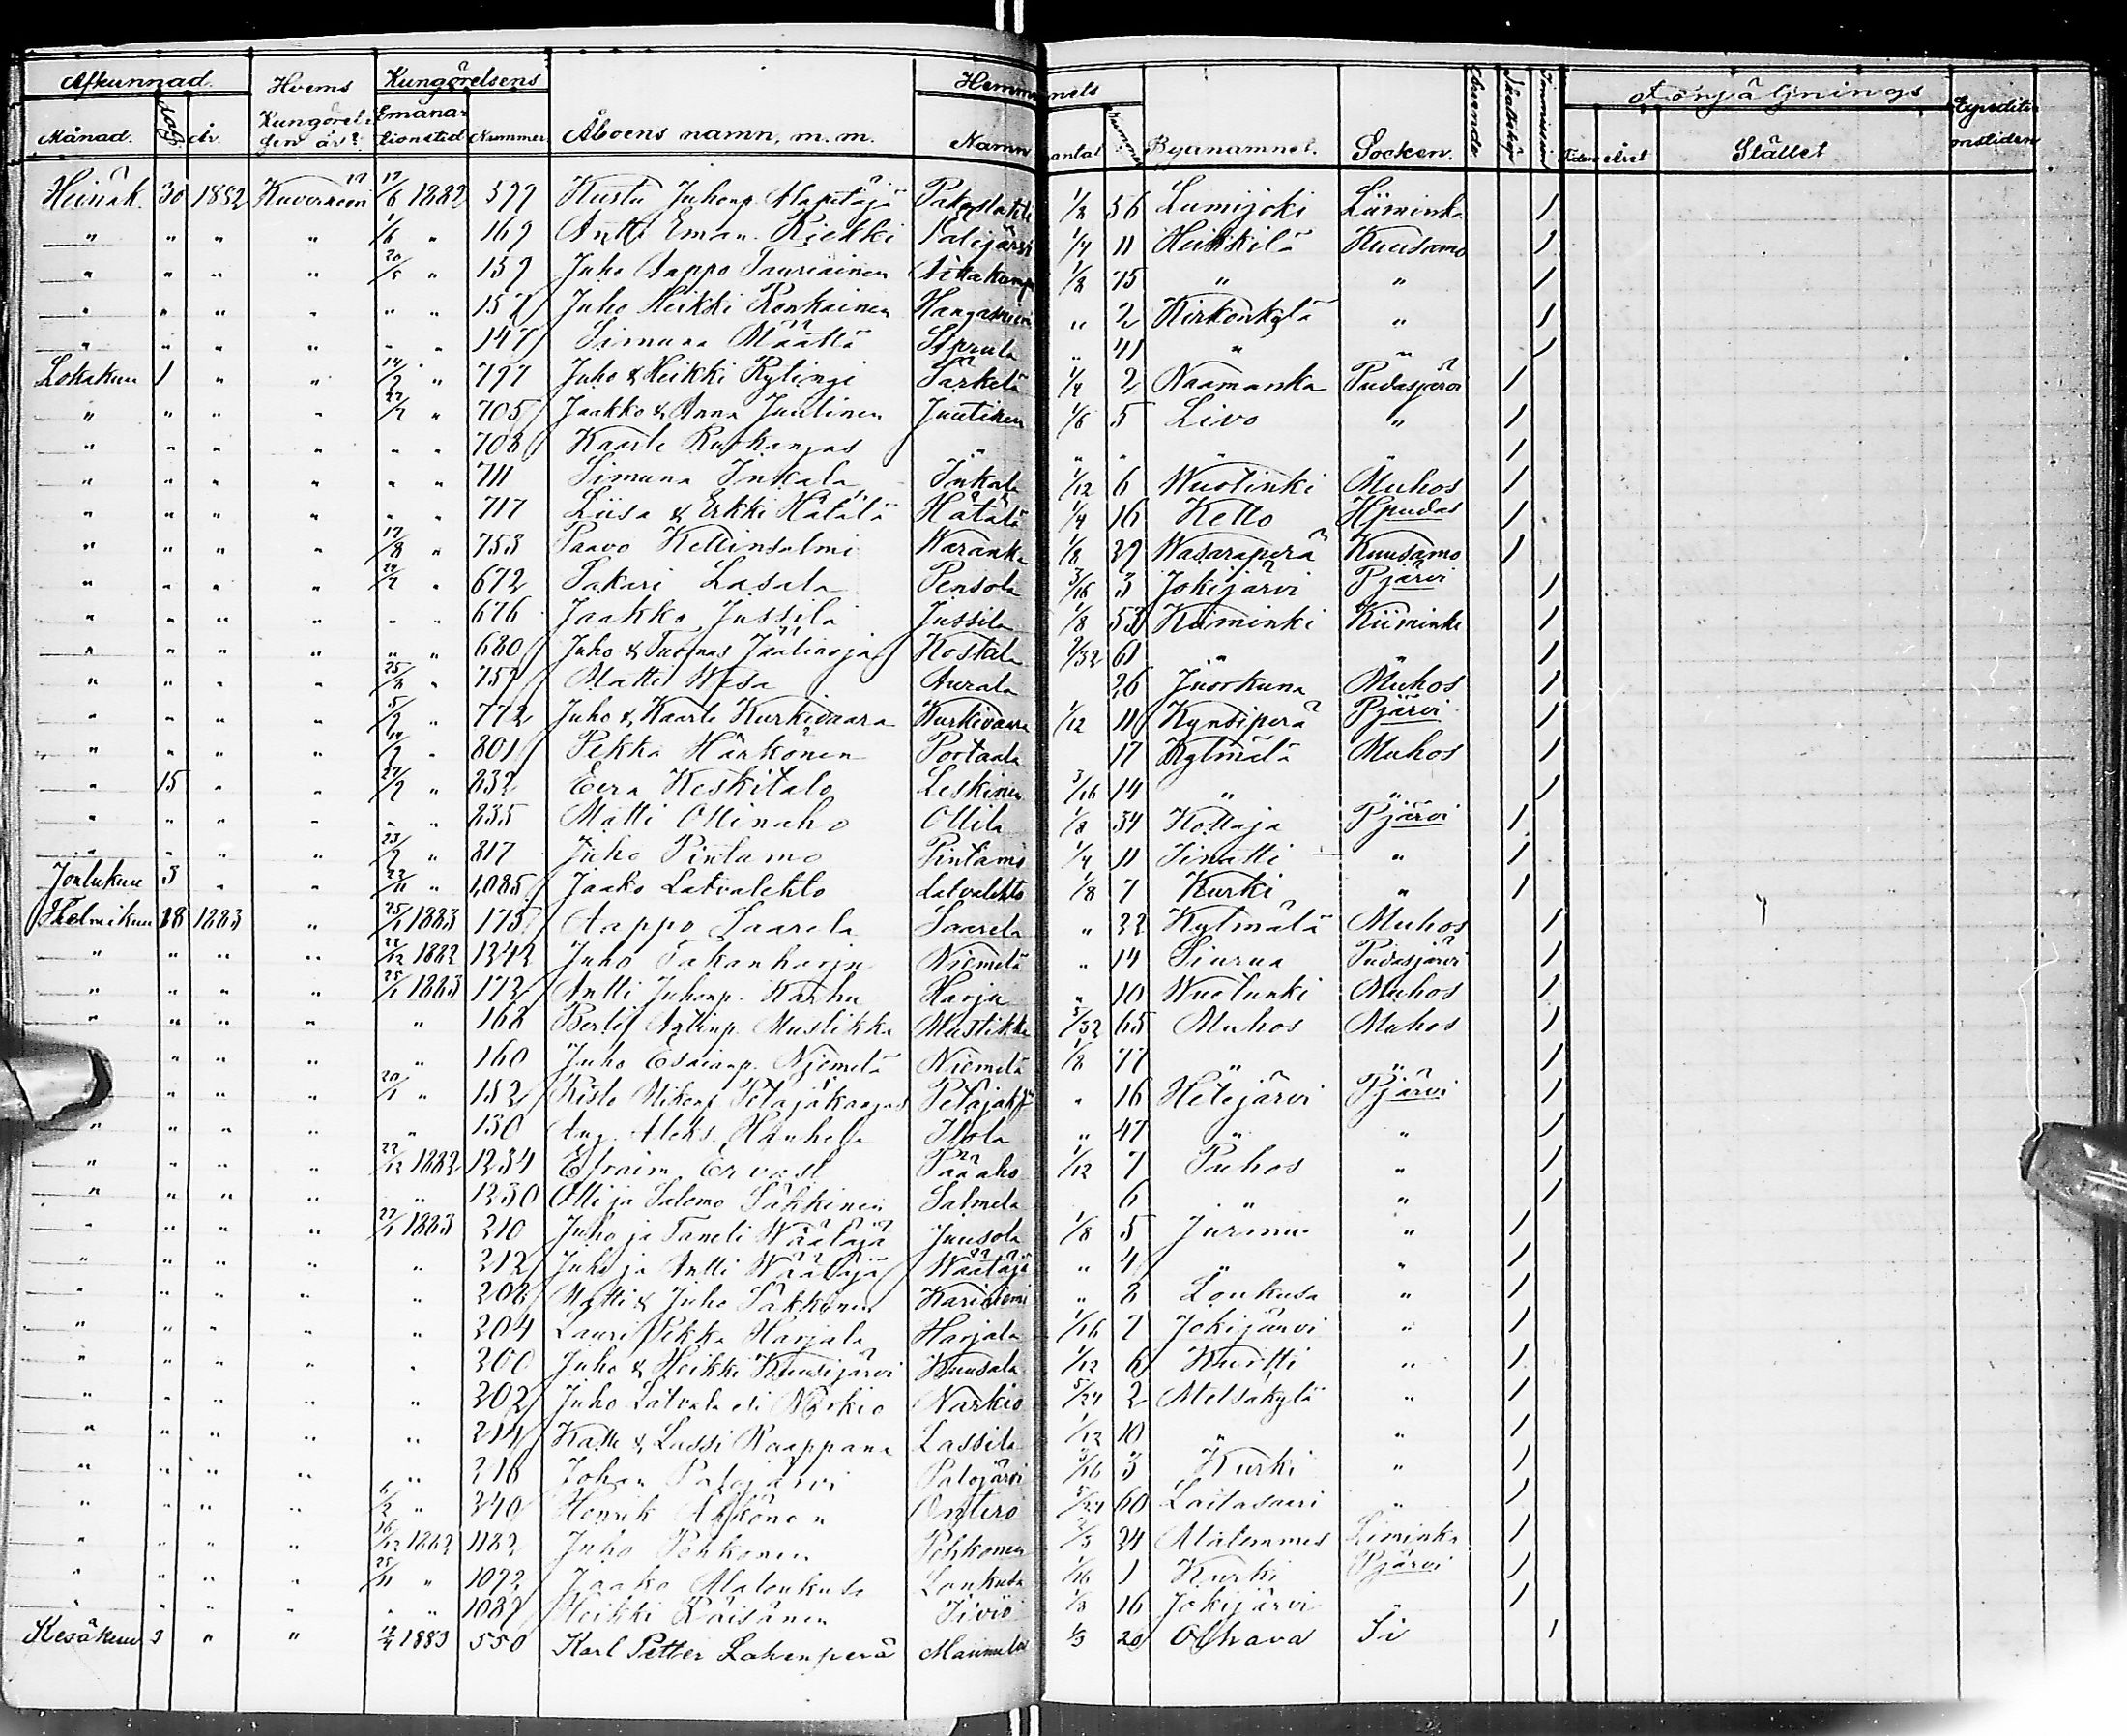 Afkunnad. Hvems Kungörelsens Hemmanets Förpaktnings
Månad. dag år Kungörel- Emana- Nummer Åboens namn, m. m. Namn antal Nummer Byanamnet. Socken. Skatteköp Immission Tiden Året Stället Expeditionstiden
gen är? tionstid
Heinäk. 30 1882 Kuvernöörin 17/6 1882 577 Kusta Juhonp. Alapetäjä 1/8 56 Lumijoki Liminka /
" " " " 1/6 " 169 Antti Eman. Kiekki Palojärvi 1/4 11 Heikkilä Kuusamo /
" " " " 20/5 " 159 Juho Aappo Tauriainen 1/8 75 " " /
" " " " " " 157 Juho Heikki Ronkainen Hangasniemi " 2 Kirkonkylä " /
" " " " " " 147 Simuna Määttä " 41 " " /
Lokakuu 1 " " 14/9 " 797 Juho & Heikki Kylingi Särkelä 1/4 2 Naamanka Pudasjärvi /
" " " " 22/7 " 705 Jaakko & Anna Juutinen Juutinen 1/6 5 Livo " /
" " " " " " 708 Kaarle Ruokangas " " " " " /
" " " " " " 711 Simuna Inkala Inkala 1/12 6 Wuotinki Muhos /
" " " " " " 717 Liisa & Erkki Hätälä Hätälä 1/4 16 Kello Hpudas /
" " " " 17/8 " 753 Paavo Kellinsalmi Waranka 1/8 39 Wasaraperä Kuusamo /
" " " " 22/7 " 672 Sakari Lasala Pensola 3/16 3 Jokijärvi Pjärvi /
" " " " " " 676 Jaakko Jussila Jussila 1/8 53 Kiiminki Kiiminki /
" " " " " " 680 Juho & Tuomas Jäälinoja Koskela 9/32 61 " " /
" " " " 25/8 " 757 Matti Wesa Aurala 26 Juorkuna Muhos /
" " " " 5/9 " 772 Juho & Kaarle Kurkivaara Kurkivaara 1/12 11 Kynsiperä Pjärvi /
" " " " 14/9 " 801 Pekka Härkönen Portaala 17 Kylmälä Muhos /
" 15 " " 27/9 " 832 Eera Keskitalo Leskinen 3/16 14 " " /
" " " " " " 835 Matti Ollinaho Ollila 1/8 34 Kollaja Pjärvi /
" " " " 23/9 " 817 Juho Pintamo Pintamo 1/4 11 " /
Joulukuu 3 " " 22/11 " 1,085 Jaako Latvalehto Latvalehto 1/8 7 Kurki " /
Helmikuu 18 1883 " 25/1 1883 175 Aappo Saarela Saarela " 22 Kylmälä Muhos /
" " " " 22/12 1882 1242 Juho Takanharju Niemelä " 14 Siurua Pudasjärvi /
" " " " 25/1 1883 172 Antti Juhonp. Karhu Harju " 10 Wuotunki Muhos /
" " " " " 168 Bertil Antinp. Mustikka Mustikka 5/32 65 Muhos Muhos /
" " " " 160 Juho Esaianp. Niemelä Niemelä 1/8 77 " " /
" " " 20/1 " 152 Risto Mikonp Petäjäkangas " 16 Hetejärvi Pjärvi /
" " " " " 150 Aug. Aleks. Hanhela Illola " 47 " " /
" " " " 22/12 1882 1234 Efraim Ervast Pääaho 1/12 7 Puhos " /
" " " " " 1230 Olli ja Salomo Säkkinen Salmela 6 " " /
" " " " 27/1 1883 210 Juho ja Taneli Väätäjä Juusola 1/8 5 " /
" " " " " 212 Juho ja Antti Wäätäjä Wäätäjä " 4 " " /
" " " " " 206 Matti & Juho Säkkinen Kariniemi " 2 Loukusa " /
" " " " " 204 Lauri Pekka Harjala Harjala 1/16 7 Jokijärvi " /
" " " " " 200 Juho & Heikki Kuusijärvi Kuusala 1/12 6 Kurtti " /
" " " " " 202 Juho Latvala eli Närkiö Närkiö 5/24 2 Metsäkylä " /
" " " " " 214 Kalle & Lassi Raappana Lassila 1/12 10 " " /
" " " " " 216 Johan Palojärvi Palojärvi 3/16 3 Kurki " /
" " " " 6/2 " 240 Henrik Ontero 5/24 60 Laitasaari " /
" " " " 16/12 1882 1182 Juho Pohkonen Pohkonen 2/3 24 Alatemmes Liminka /
" " " " 25/11 " 1092 Jaako Alaloukusa Loukusa 1/16 1 Kurki Pjärvi /
" " " " " " 1087 Heikki Räisänen 1/8 16 Jokijärvi " /
Kesäkuu 3 " " 12/4 1883 550 Karl Petter Lahenperä 1/3 20 Olhava Ii /